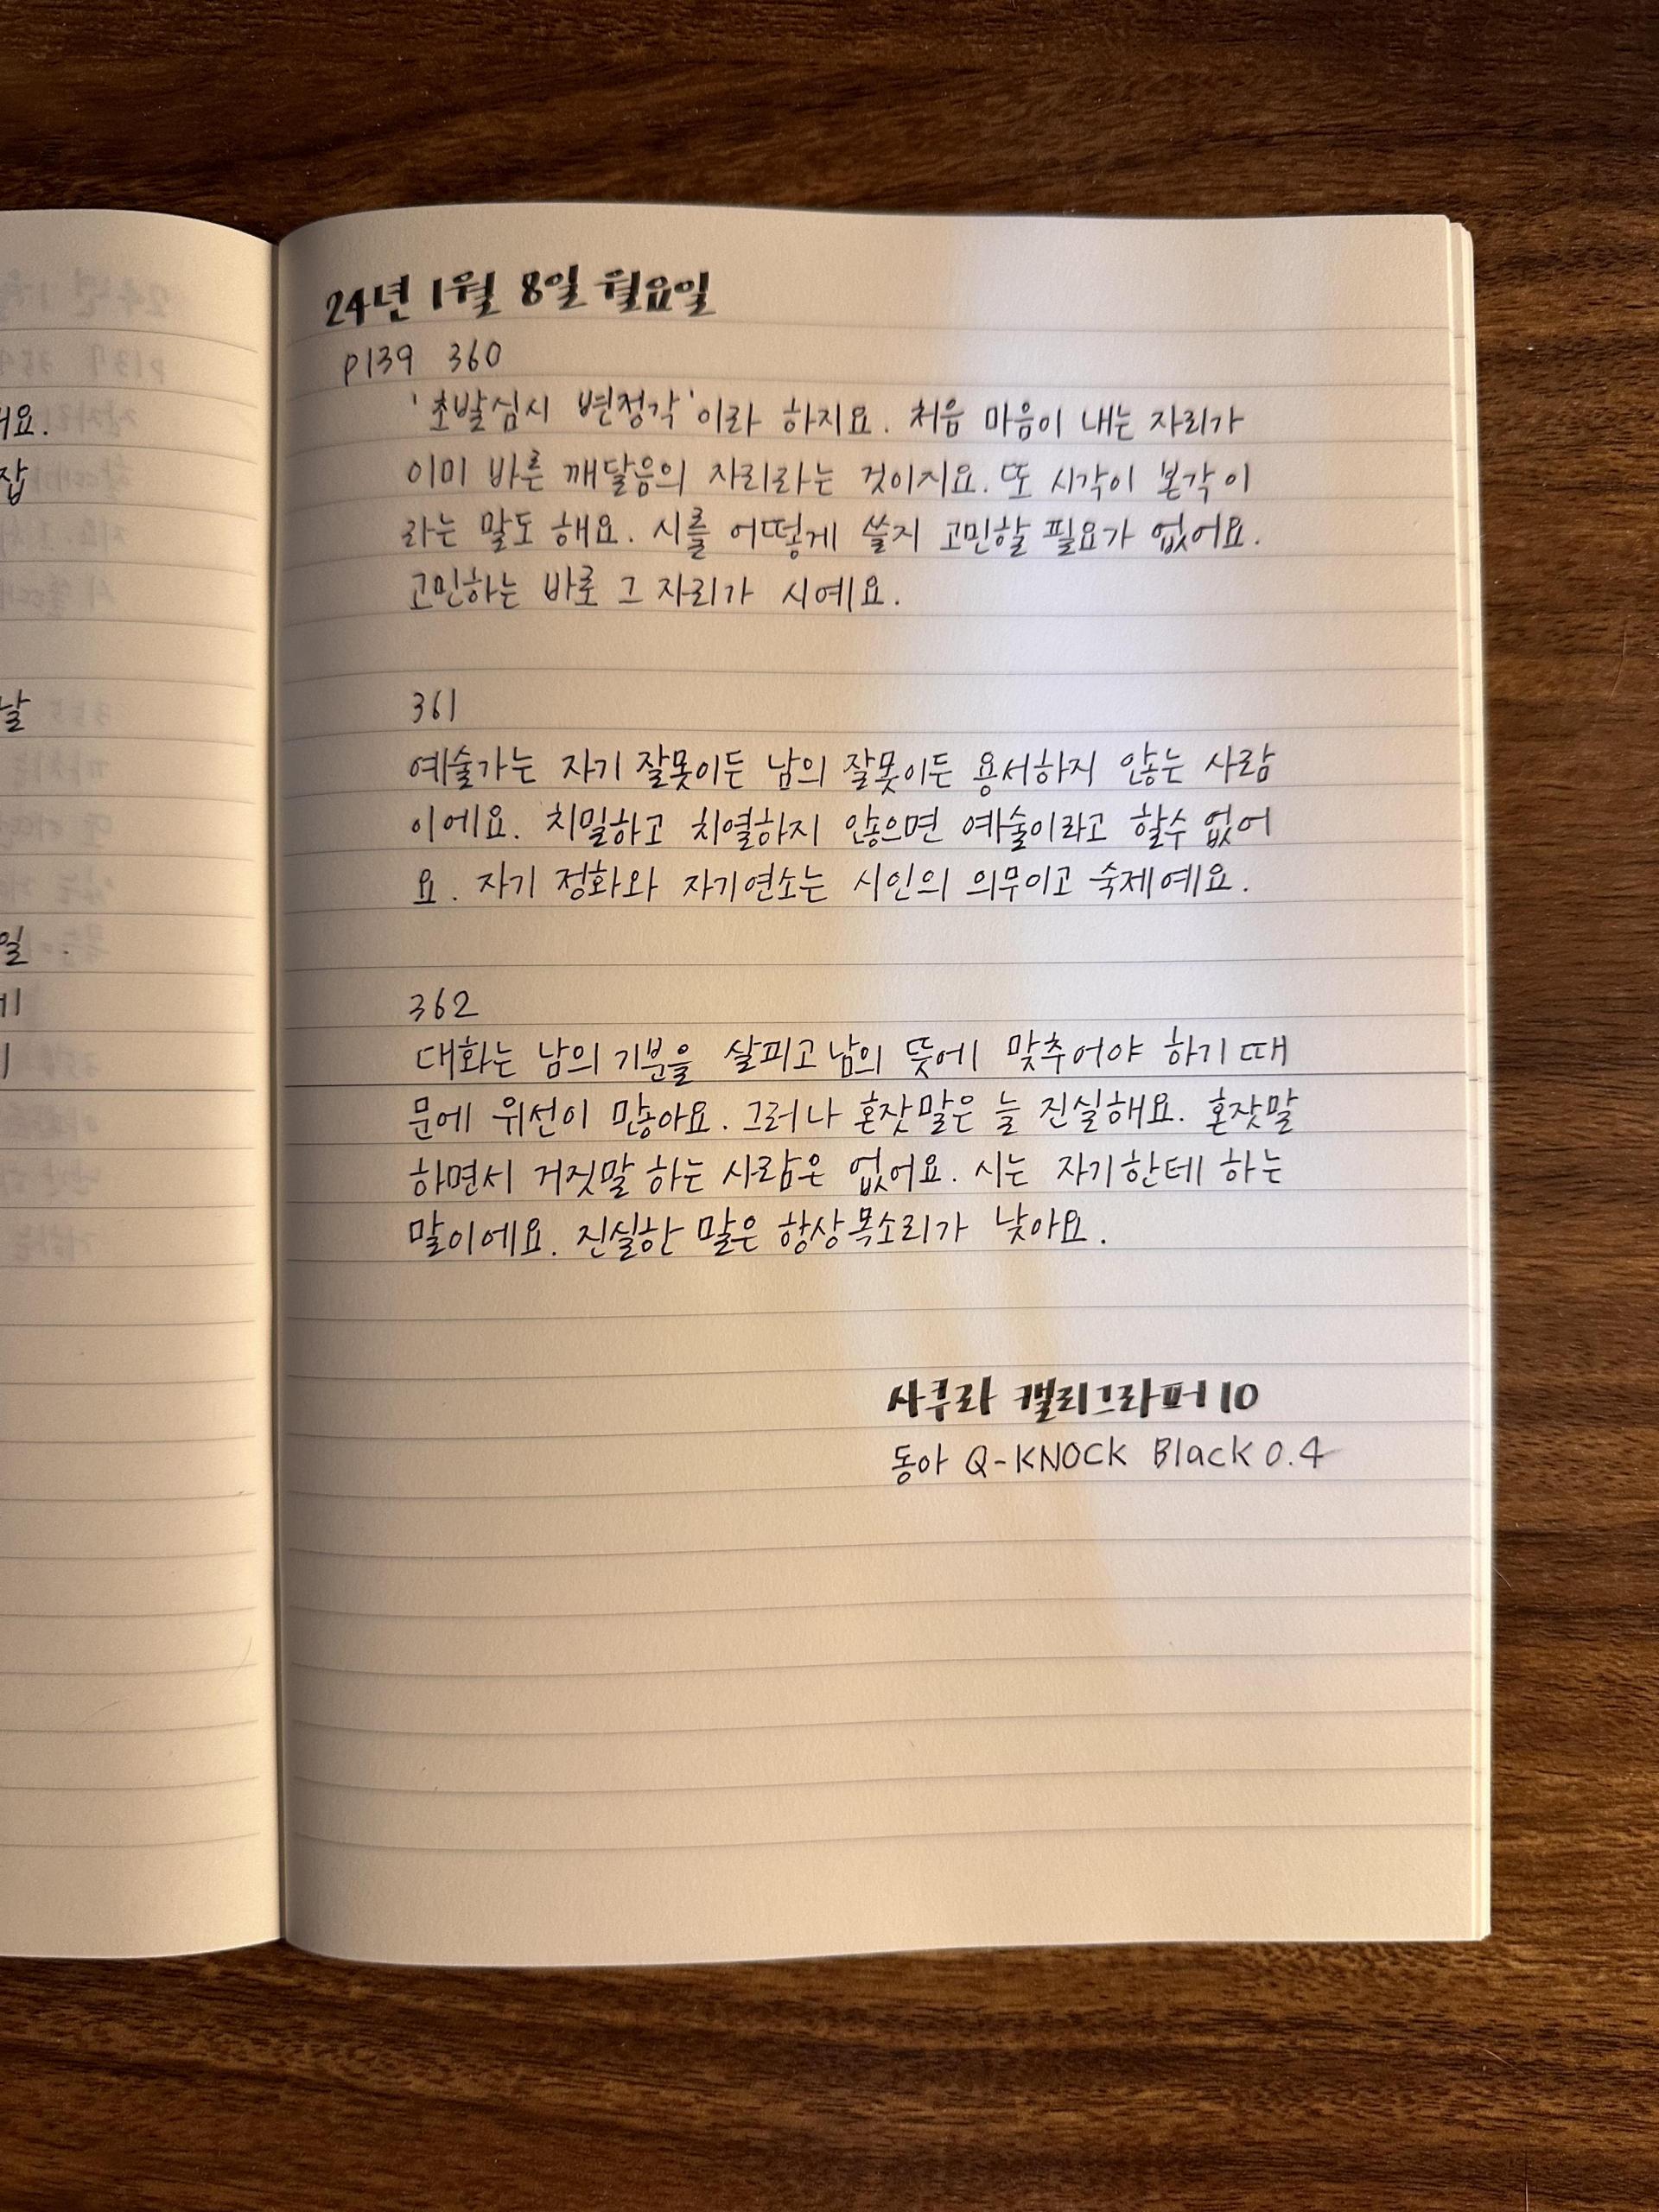 24년 1월 8일 월요일
p139 360
'초발심시 변정각'이라 하지요. 처음 마음이 내는 자리가
이미 바른 깨달음의 자리라는 것이지요. 또 시각이 본각이
라는 말도 해요. 시를 어떻게 쓸지 고민할 필요가 없어요.
고민하는 바로 그 자리가 시예요.
361
예술가는 자기 잘못이든 남의 잘못이든 용서하지 않는 사람
이에요. 치밀하고 치열하지 않으면 예술이라고 할수 없어
요. 자기 정화와 자기연소는 시인의 의무이고 숙제예요.
362
대화는 남의 기분을 살피고 남의 뜻에 맞추어야 하기 때
문에 위선이 많아요. 그러나 혼잣말은 늘 진실해요. 혼잣말
하면서 거짓말 하는 사람은 없어요. 시는 자기한테 하는
말이에요. 진실한 말은 항상 목소리가 낮아요.
사쿠라 캘리그라퍼 10
동아 Q-KNOCK Black 0.4